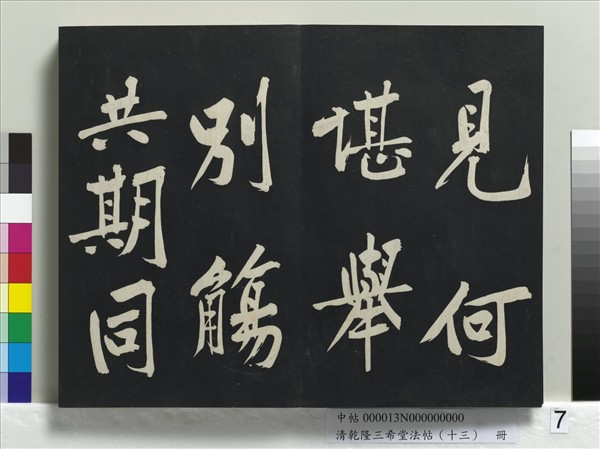 見何
堪舉
別觴
共期同
中帖 000013N000000000
清乾隆三希堂法帖（十三） 冊
7